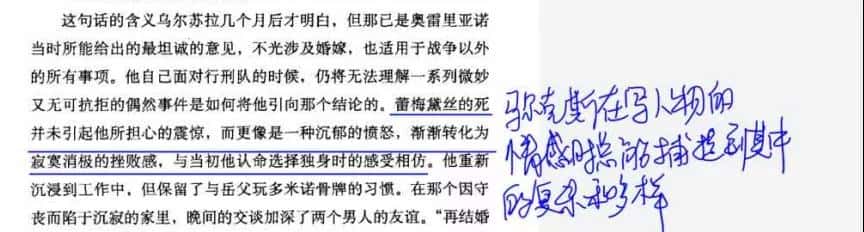 这句话的含义乌尔苏拉几个月后才明白，但那已是奥雷里亚诺
当时所能给出的最坦诚的意见，不光涉及婚嫁，也适用于战争以外
的所有事项。他自己面对行刑队的时候，仍将无法理解一系列微妙
又无可抗拒的偶然事件是如何将他引向那个结论的。蕾梅黛丝的死
并未引起他所担心的震惊，而更像是一种沉郁的愤怒，渐渐转化为
寂寞消极的挫败感，与当初他认命选择独身时的感受相仿。他重新
沉浸到工作中，但保留了与岳父玩多米诺骨牌的习惯。在那个因守
丧而陷于沉寂的家里，晚间的交谈加深了两个男人的友谊。“再结婚
马尔克斯在写人物的
情感时总能捕捉到其中
的复杂和多样